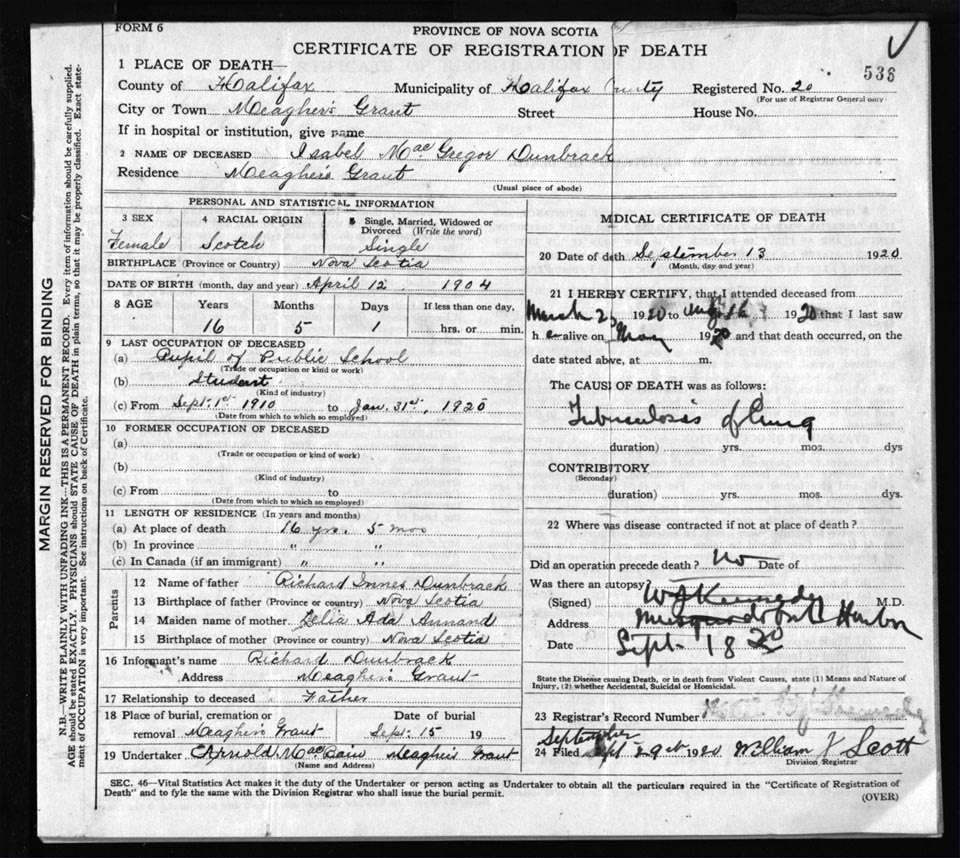 FORM 6
PROVINCE OF NOVA SCOTIA
CERTIFICATE OF REGISTRATION OF DEATH
536
1 PLACE OF DEATH—
County of Halifax Municipality of Halifax County Registered No. 20
(For use of Registrar General only)
City or Town Meagher's Grant Street House No.
If in hospital or institution, give name
2 NAME OF DECEASED Isabel MacGregor Dunbrack
Residence Meaghers Grant
(Usual place of abode)
PERSONAL AND STATISTICAL INFORMATION
3 SEX 4 RACIAL ORIGIN 5 Single, Married, Widowed or Divorced (Write the word)
Female Scotch Single
BIRTHPLACE (Province or Country) Nova Scotia
DATE OF BIRTH (month, day and year) April 12 1904
8 AGE Years Months Days If less than one day,
16 5 1 hrs. or min.
9 LAST OCCUPATION OF DECEASED
(a) Pupil of Public School
(Trade or occupation or kind or work)
(b) Student
(Kind of industry)
(c) From Sept. 1st 1910 to Jan. 31st, 1920
(Date from which to which so employed)
10 FORMER OCCUPATION OF DECEASED
(a)
(Trade or occupation or kind of work)
(b)
(Kind of industry)
(c) From to
(Date from which to which so employed)
11 LENGTH OF RESIDENCE (In years and months)
(a) At place of death 16 yrs. 5 mos
(b) In province " "
(c) In Canada (if an immigrant) " "
Parents
12 Name of father Richard Innes Dunbrack
13 Birthplace of father (Province or country) Nova Scotia
14 Maiden name of mother Lelia Ada Annand
15 Birthplace of mother (Province or country) Nova Scotia
16 Informant's name Richard Dunbrack
Address Meaghers Grant
17 Relationship to deceased Father
18 Place of burial, cremation or removal Meaghers Grant Date of burial Sept. 15 19
19 Undertaker Arnold MacBain Meaghers Grant
(Name and Address)
MDICAL CERTIFICATE OF DEATH
20 Date of deth September 13 1920
(Month, day and year)
21 I HEREBY CERTIFY, that I attended deceased from
March 1920 to 1920 that I last saw
h er alive on May 1920 and that death occurred, on the
date stated above, at m.
The CAUS OF DEATH was as follows:
Tuberculosis of Lung
(duration) yrs. mos. dys
CONTRIBUTORY
(Secondary)
(duration) yrs. mos. dys.
22 Where was disease contracted if not at place of death?
Did an operation precede death? No Date of
Was there an autopsy
(Signed) W J Kennedy M.D.
Address Musquodoboit Harbor
Date Sept. 18 20
State the Disease causing Death, or in death from Violent Causes, state (1) Means and Nature of
Injury, (2) whether Accidental, Suicidal or Homicidal.
23 Registrar's Record Number
24 Filed September 1920 William Scott
Division Registrar
SEC. 46—Vital Statistics Act makes it the duty of the Undertaker or person acting as Undertaker to obtain all the particulars required in the "Certificate of Registration of
Death" and to fyle the same with the Division Registrar who shall issue the burial permit.
(OVER)
MARGIN RESERVED FOR BINDING
N.B.—WRITE PLAINLY WITH UNFADING INK—THIS IS A PERMANENT RECORD. Every item of information should be carefully supplied.
AGE should be stated EXACTLY. PHYSICIANS should STATE CAUSE OF DEATH in plain terms, so that it may be properly classified. Exact statement of OCCUPATION is very important. See instructions on back of Certificate.